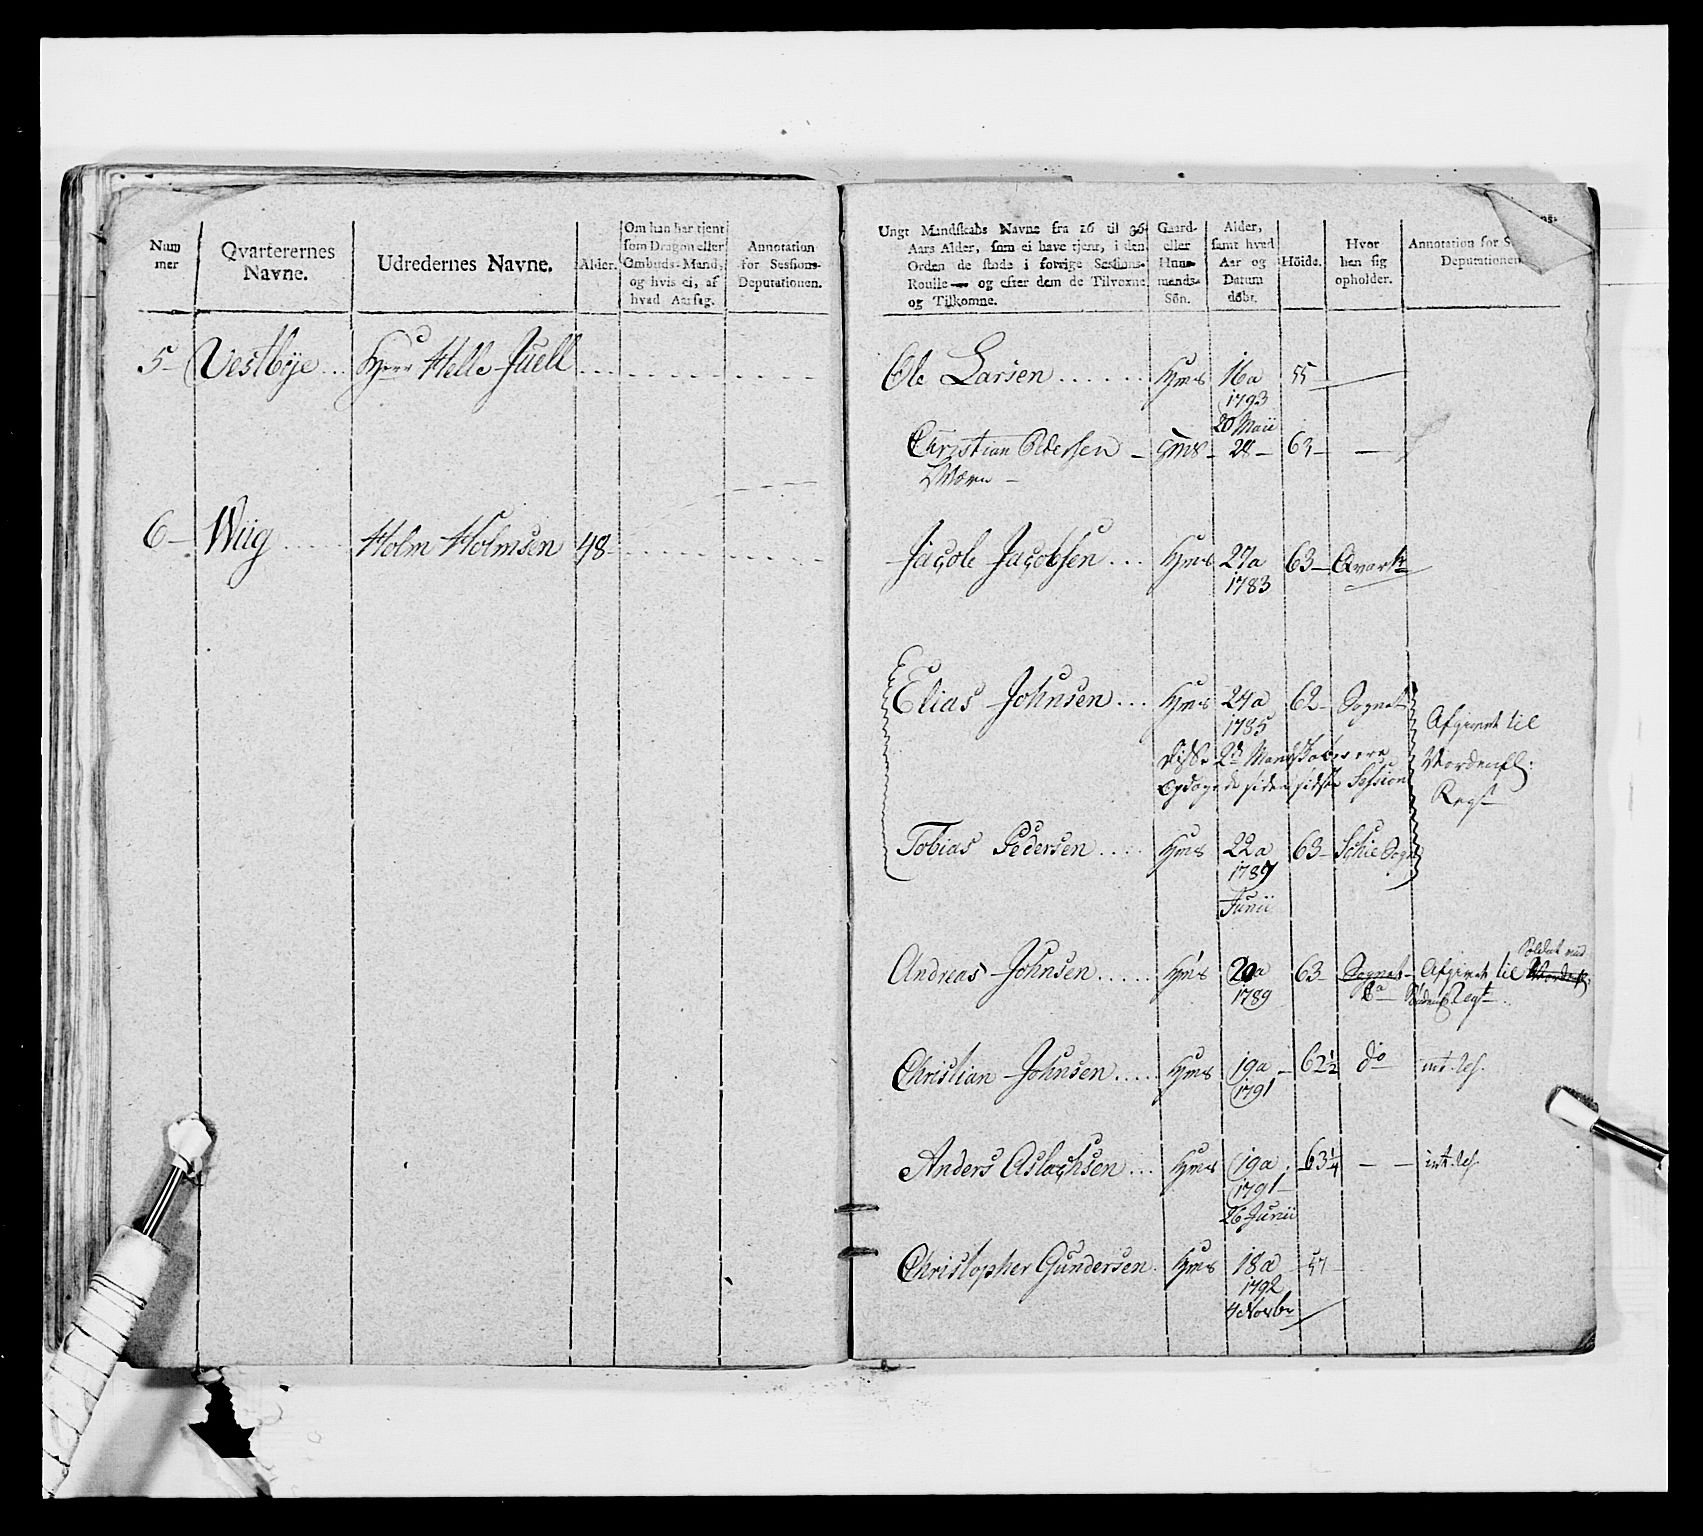 Num
mer
Qvarterernes
Navne.
Udredernes Navne.
Alder.
Om han har tjent
som Dragon eller
Ombuds-Mand,
og hvis ei, af
hvad Aarsag.
Annotation
for Sessions-
Deputationen.
5 Vestbÿe Herr Helle Juell
6 Wiig Holm Holmsen 48
Ungt Mandskabs Navne fra 16 til 36
Aars Alder, som ei have tjent, i den
Orden de stode i forrige Sessions-
Roulle — og efter dem de Tilvoxne
og Tilkomne.
Gaard-
eller
Huus-
mands-
Sön.
Alder,
samt hvad
Aar og
Datum
döbt.
Höide.
Hvor
han sig
opholder.
Annotation for S
Deputationen
Ole Larsen Hms 16a 55
1793
20 Maii
Christian Pedersen 28 63
Jacob Jacobsen Hms 27a 63 Qvart
1783
Elias Johnsen Hms 24a 62 Sognet
1785
Afgivet til
Disse 2de Mandskaber ere
Nordenfl:
Opdagede siden sidste Session
Regt
Tobias Pedersen Hms 22a 63 Schie Sogn
1787
Junii
Soldat ved
Andreas Johnsen Hms 20a 63 Sognet Afgivet til
1789 Regt
Christian Johnsen Hms 19a 62½ do
1791
Anders Aslachsen Hms 19a 63¼
1791
26 Junii
Christopher Gundersen Hms 18a 57
1792
4 Novbr